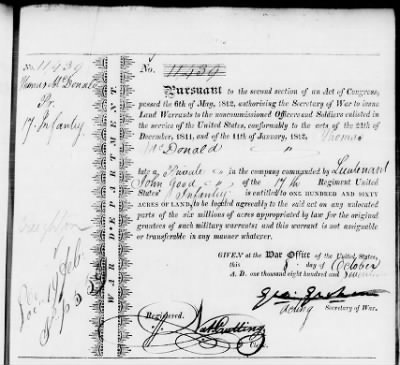 No. 11439
Thomas McDonald
Pr.
17. Infantry
WAR DEPARTMENT
No. 11439
Pursuant to the second section of an Act of Congress,
passed the 6th of May, 1812, authorising the Secretary of War to issue
Land Warrants to the noncommissioned Officers and Soldiers enlisted in
the service of the United States, conformably to the acts of the 24th
December, 1811, and of the 11th of January, 1812, Thomas
McDonald
late a Private in the company commanded by Lieutenant
John Good of the 17th Regiment United
States' Infantry is entitled to ONE HUNDRED AND SIXTY
ACRES OF LAND, to be located agreeably to the said act on any unlocated
parts of the six millions of acres appropriated by law for the original
grantees of such military warrants; and this warrant is not assignable
or transferable in any manner whatever.
GIVEN at the War Office of the United States,
this 8 day of October
A. D. one thousand eight hundred and
Geo: Graham
Acting Secretary of War.
Registered.
Nath Cutting
Clerk.